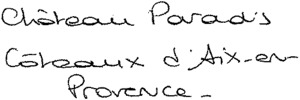 Château Paradis
Côteaux d'Aix-en-
Provence_